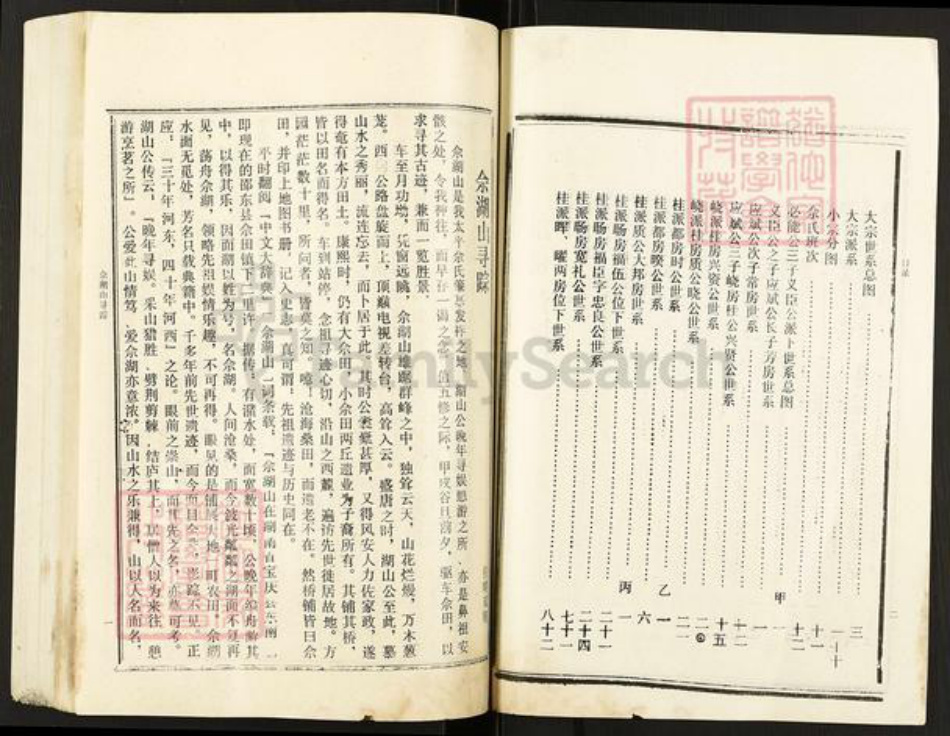 目录
大宗世系总图
大宗派系 三
小宗分图
佘氏班次 十一
必能公三子义臣公派下世系总图 十二
义臣公之子应斌公长子芳房世系 一
应斌公次子常房世系
应斌公三子峣房桂公兴贤公世系
峣派桂房兴资公世系 十五
峣派桂房质公晓公世系
桂派都房时公世系
桂派都房暌公世系
桂派质公大邦房世系 六
桂派旸房福伍公位下世系
桂派旸房福臣字忠良公世系 二十四
桂派旸房宽礼公世系 七十一
桂派晖、曜两房位下世系 八十二
甲
乙
丙
二
佘湖山寻踪
佘湖山是我太平佘氏肇基发祥之地,湖山公晚年寻娱憩游之所,亦是鼻祖安
骸之处,令我神往,而早有一谒之念。值五修之际,甲戌谷旦前夕,驱车佘田,以
求寻其古迹,兼而一览胜景。
车至月功塆,凭窗远眺,佘湖山雄踞群峰之中,独耸云天,山花烂熳,万木葱
茏。西三公路盘旋而上,顶巅电视差转台,高耸入云。盛唐之时,湖山公至此,慕
山水之秀丽,流连忘云,而卜居于此。其时公囊橐甚厚,又得风安人力佐家政,遂
得毫有本方田土。康熙时,仍有大佘田、小佘田两丘遗业为子裔所有。其铺其桥,
皆以田名而得名。车到站停,念祖寻迹心切,沿山之西麓,遍访先世徙居故地。方
圆茫茫数十里,所问者,皆莫之知。噫!沧海桑田,而遗老不在。然桥铺皆曰佘
田,并印上地图书册,记入史志,真可谓:先祖遗迹与历史同在。
平时翻阅『中文大辞典』,佘湖山一词条载,『佘湖山在湖南省宝庆县东南』
即现在的邵东县佘田镇下二里许。据传,有潴水处,面宽数十顷,公晚年编舟游其
中,以得其乐,因而湖以姓为号,名佘湖。人问沧桑,而今波光粼粼之湖面不复再
见,荡舟佘湖,领略先祖娱情乐趣,不可再得。眼见的是铺展大地,町农田,佘湖
水面无觅处,芳名只载典籍中。千多年前先世遗迹,而今面目全非,影踪不见。正
应:『三十年河东,四十年河西』之论。眼前之崇山,而其先之名,亦草可考。
湖山公传云,『晚年寻娱。采山猎胜,劈荆剪棘,结庐其上,居僧人以为来往,憩
游烹茗之所』。公爱此山情笃,爱佘湖亦意浓。因山水之乐兼得,山以人名而名,
佘湖山寻踪
一
FamilySearch